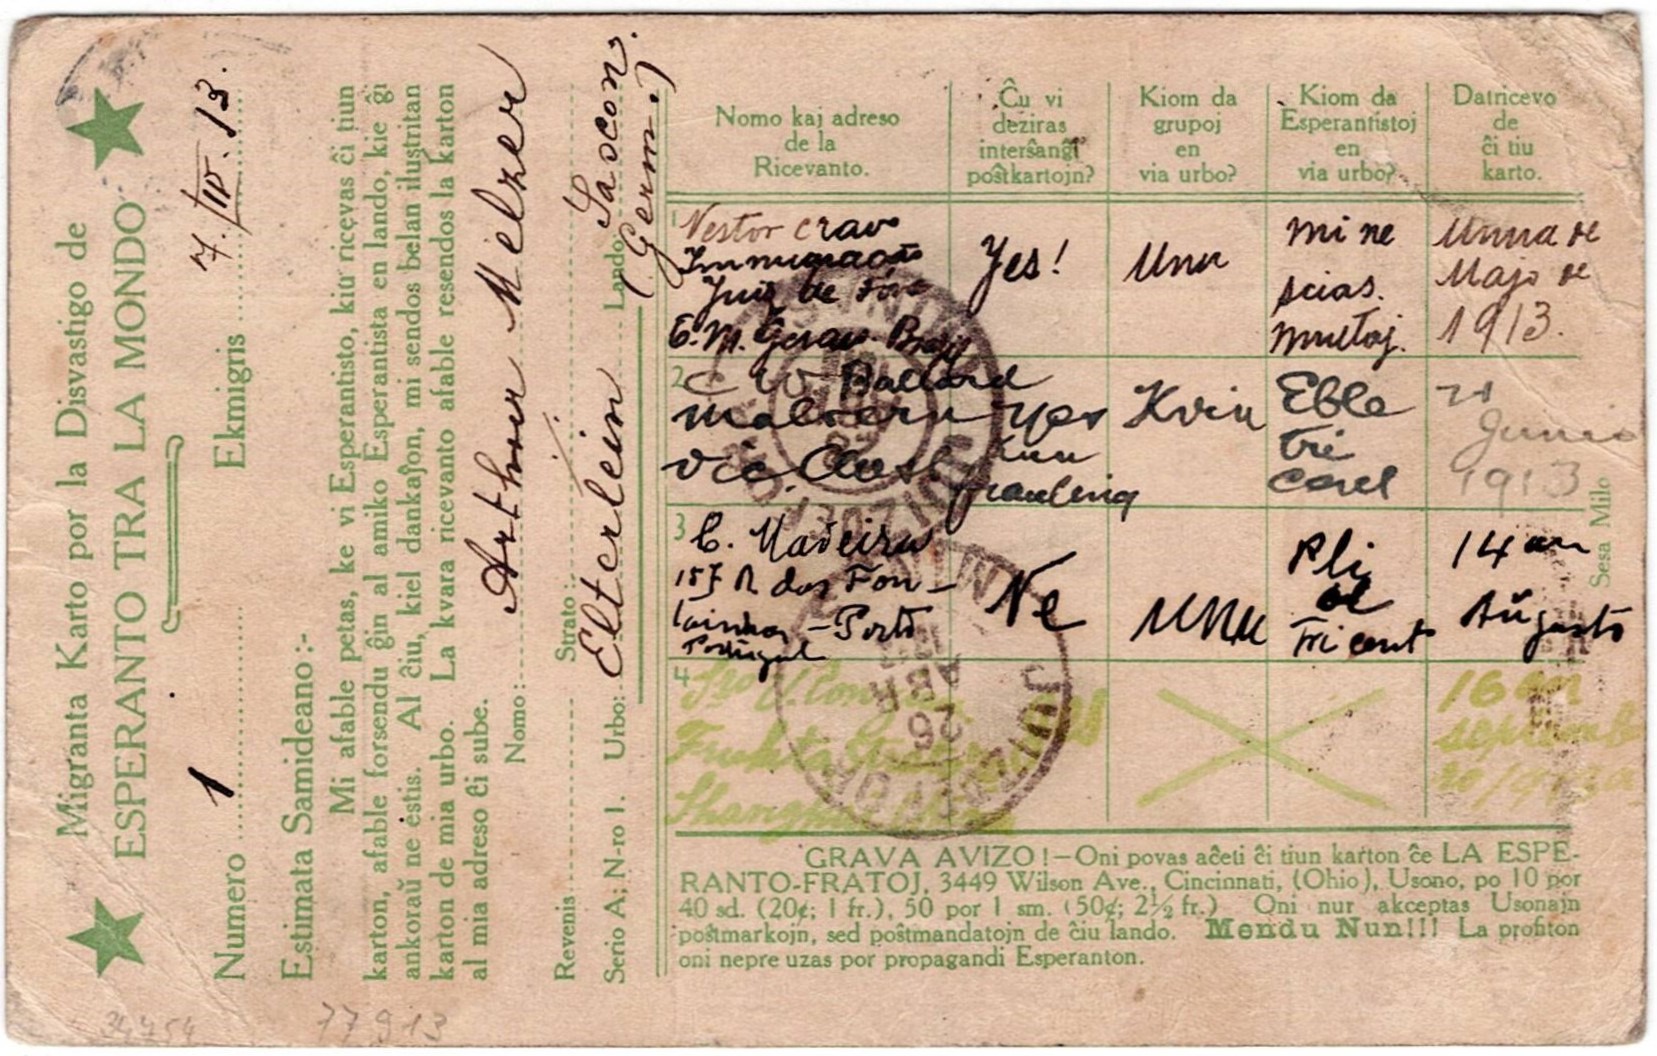 Migranta Karto por la Disvastigo de
ESPERANTO TRA LA MONDO
Numero 1 Ekmigris 7./IV.13.
Estimata Samideano:-
Mi afable petas, ke vi Esperantisto, kiu ricevas ĉi tiun
karton, afable forsendu ĝin al amiko Esperantista en lando, kie ĝi
ankoraŭ ne estis. Al ĉiu, kiel dankaĵon, mi sendos belan ilustritan
karton de mia urbo. La kvara ricevanto afable resendos la karton
al mia adreso ĉi sube.
Nomo: Arthur Melzer
Revenis Strato:
Serio A; N-ro 1. Urbo: Elterlein Lando:
(Germ.)
Nomo kaj adreso
de la
Ricevanto.
Ĉu vi
deziras
interŝanĝi
poŝtkartojn?
Kiom da
grupoj
en
via urbo?
Kiom da
Esperantistoj
en
via urbo?
Datricevo
de
ĉi tiu
karto.
1
Nestor Cravo
Juiz de Fora
Yes!
Unu
mi ne
scias.
multaj.
Unua de
Majo de
1913.
2
C W Ballard
Malvern
Vic. Aust
Yes
kun
fraulinoj
Kvin
Eble
tri
cent
21
Junio
1913
3
C. Madeira
157 R. das Fon-
tainhas - Porto
Portugal
Ne
Unu
Pli
ol
tricent
14an
Aŭgusto
4
Shanghai
16an
Sesa Milo
JUIZ DE FORA
MINAS
26
ABR
GRAVA AVIZO!—Oni povas aĉeti ĉi tiun karton ĉe LA ESPE-
RANTO-FRATOJ, 3449 Wilson Ave., Cincinnati, (Ohio), Usono, po 10 por
40 sd. (20¢; 1 fr.), 50 por 1 sm. (50¢; 2½ fr.) Oni nur akceptas Usonajn
poŝtmarkojn, sed poŝtmandatojn de ĉiu lando. Mendu Nun!!! La profiton
oni nepre uzas por propagandi Esperanton.
77913